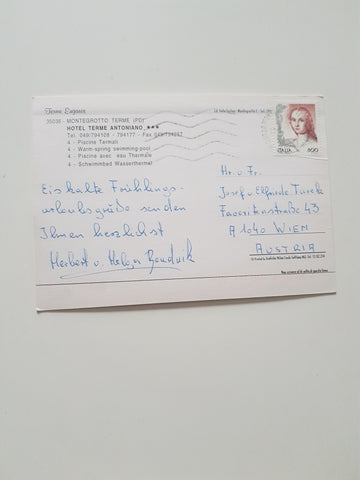 Terme Euganee
35036 - MONTEGROTTO TERME (PD)
HOTEL TERME ANTONIANO ★★★
Tel. 049/794108 - 794177 - Fax 049/794257
4 - Piscine Termali
4 - Warm-spring swimming-pool
4 - Piscine avec eau Thermale
4 - Schwimmbad Wasserthermal
Eiskalte Frühlings-
urlaubsgrüße senden
Ihnen herzlichst
Herbert u. Helga
ITALIA 800
Hr. u. Fr.
Josef u. Elfriede
Favoritenstraße 43
A 1040 WIEN
AUSTRIA